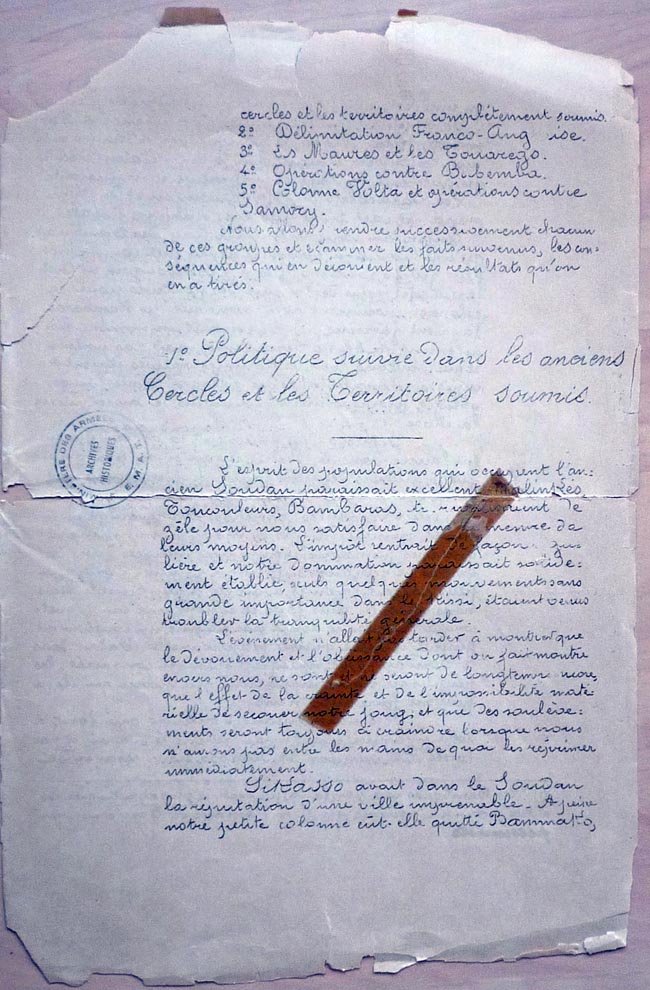 cercles et les territoires complètement soumis.
2º Délimitation Franco-Ang ise.
3º Les Maures et les Touaregs.
4º Opérations contre Babemba.
5º Colonne Volta et opérations contre
Samory.
Nous allons rendre successivement chacun
de ces groupes et examiner les faits survenus, les con-
séquences qui en découlent et les résultats qu'on
en a tirés.
1º Politique suivie dans les anciens
Cercles et les Territoires soumis.
MINISTÈRE DES ARMÉES
ARCHIVES
HISTORIQUES
E.M.A.
L'esprit des populations qui occupent l'an-
cien Soudan paraissait excellent, Malinkés,
Toucouleurs, Bambaras, de
zèle pour nous satisfaire dans la mesure de
leurs moyens. L'impôt rentrait de façon
lière et notre domination paraissait solide-
ment établie, seuls quelques mouvements sans
grande importance dans le Kissi, étaient venus
troubler la tranquilité générale.
L'événement n'allait pas tarder à montrer que
le dévouement et l'obéissance dont on fait montre
envers nous, ne sont et ne seront de longtemps encore,
que l'effet de la crainte et de l'impossibilité maté-
rielle de secouer notre joug, et que des soulève-
ments seront toujours à craindre lorsque nous
n'aurons pas entre les mains de quoi les réprimer
immédiatement.
Sikasso avait dans le Soudan
la réputation d'une ville imprenable. A peine
notre petite colonne eût-elle quitté Bammako,